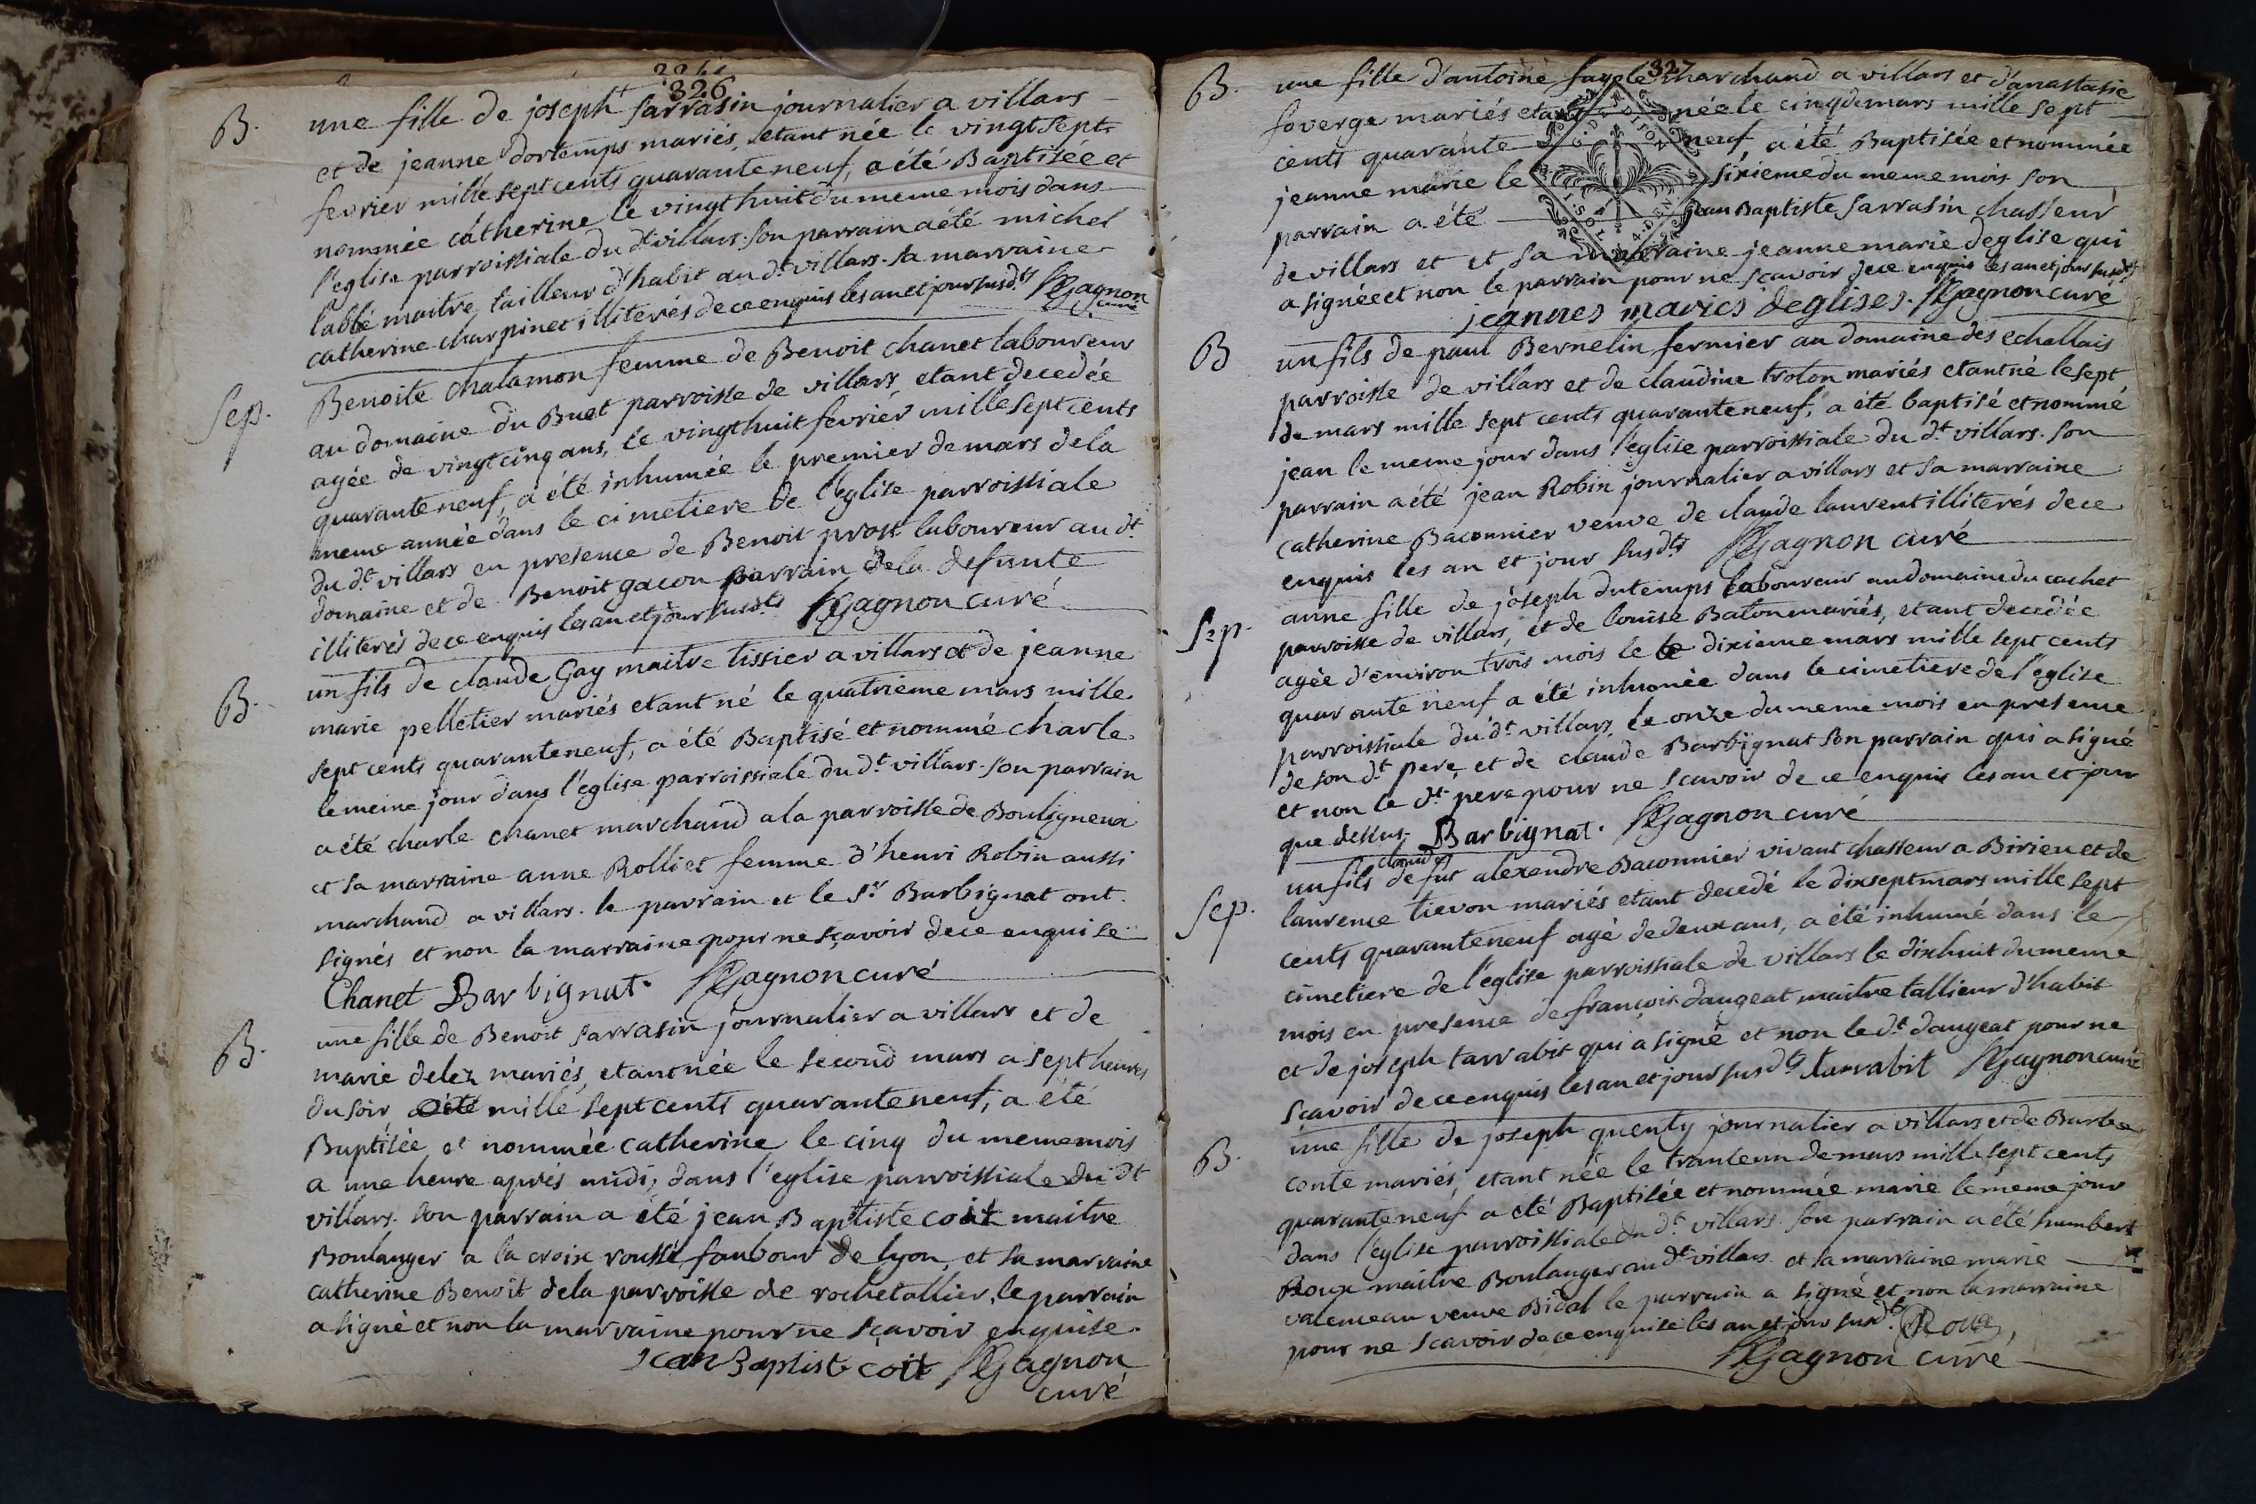 326
B. une fille de joseph sarrasin journalier a villars
et de jeanne dortemps mariés, etant née le vingt sept
fevrier mille sept cents quarante neuf, a été Baptisée et
nommée catherine le vingt huit du meme mois dans
l'eglise parroissiale du dt villars. son parrain a été michel
labbé maitre tailleur d'habit au dt villars. sa marraine
catherine charpinet illiterés de ce enquis les an et jour susdts Gagnon
curé
Sep. Benoite chalamon femme de Benoit chanet laboureur
au domaine du Buet parroisse de villars, etant decedée
agée de vingt cinq ans, le vingt huit fevrier mille sept cents
quarante neuf, a été inhumée le premier de mars de la
meme année dans le cimetiere de l'eglise parroissiale
du dt villars en presence de Benoit prost laboureur au dt
domaine et de Benoit gacon parrain de la defunte
illiterés de ce enquis les an et jour susdts Gagnon curé
B. un fils de claude Gay maitre tissier a villars et de jeanne
marie pelletier mariés etant né le quatrieme mars mille
sept cents quarante neuf, a été Baptisé et nommé charle
le meme jour dans l'église parroissiale du dt villars. son parrain
a été charle chanet marchand a la parroisse de Bouligneux
et sa marraine anne Rolliet femme d'henri Robin aussi
marchand a villars. le parrain et le sr Barbignat ont
signés et non la marraine pour ne sçavoir de ce enquise
Chanet Barbignat. Gagnon curé
B. une fille de Benoit sarrasin journalier a villars et de
marie delez mariés, etant née le second mars a sept heures
du soir mille sept cents quarante neuf, a été
Baptisée et nommée catherine le cinq du meme mois
a une heure aprés midi, dans l'eglise parroissiale du dt
villars. son parrain a été jean Baptiste coit maitre
Boulanger a la croix rousse faubour de lyon, et sa marraine
catherine Benoit de la parroisse de rochetallier, le parrain
a signé et non la marraine pour ne sçavoir enquise.
Jean Baptist coit Gagnon
curé
327
B. une fille d'antoine fayole marchand a villars et d'anastasie
foverge mariés etant née le cinq de mars mille sept
cents quarante neuf a été Baptisée et nommée
jeanne marie le sixieme du meme mois son
parrain a été jean Baptiste sarrasin chasseur
de villars et et sa marraine jeanne marie deglise qui
a signée et non le parrain pour ne sçavoir de ce enquis les an et jour susdts
jeannes maries deglises. Gagnon curé
B un fils de paul Bernelin fermier au domaine des echallais
parroisse de villars et de claudine trolon mariés etant né le sept
de mars mille sept cents quarante neuf, a été baptisé et nommé
jean le meme jour dans l'église parroissiale du dt villars. son
parrain a été jean Robin journalier a villars et sa marraine
catherine Baconnier veuve de claude laurent illiterés de ce
enquis les an et jour susdts Gagnon curé
Sep. anne fille de joseph dutemps laboureur au domaine du cachet
parroisse de villars, et de louise Baton mariés, etant decedée
agée d'environ trois mois le le dixieme mars mille sept cents
quarante neuf a été inhumée dans le cimetiere de l'eglise
parroissiale du dt villars le onze du meme mois en presence
de son dt pere, et de claude Barbignat son parrain qui a signé
et non le dt pere pour ne sçavoir de ce enquis les an et jour
que dessus. Barbignat. Gagnon curé
claude
Sep. un fils de fut alexendre Baconnier vivant chasseur a Birieu et de
laurence tievon mariés etant decedé le dixsept mars mille sept
cents quarante neuf agé de deux ans, a été inhumé dans le
cimetiere de l'église parroissiale de villars le dixhuit du meme
mois en presence de françois daugeat maitre tallieur d'habit
et de joseph tarrabit qui a signé et non le dt daugeat pour ne
sçavoir de ce enquis les an et jour susdts tarrabit Gagnon curé
B. une fille de joseph quenty journalier a villars et de Barbe
conte mariés, etant née le trenteun de mars mille sept cents
quarante neuf a été Baptisée et nommée marie le meme jour
dans l'eglise parroissiale du dt villars. son parrain a été humbert
Roux maitre Boulanger au dt villars et sa marraine marie
veuve Bidal le parrain a signé et non la marraine
pour ne sçavoir de ce enquise les an et jour susdts Roux
Gagnon curé